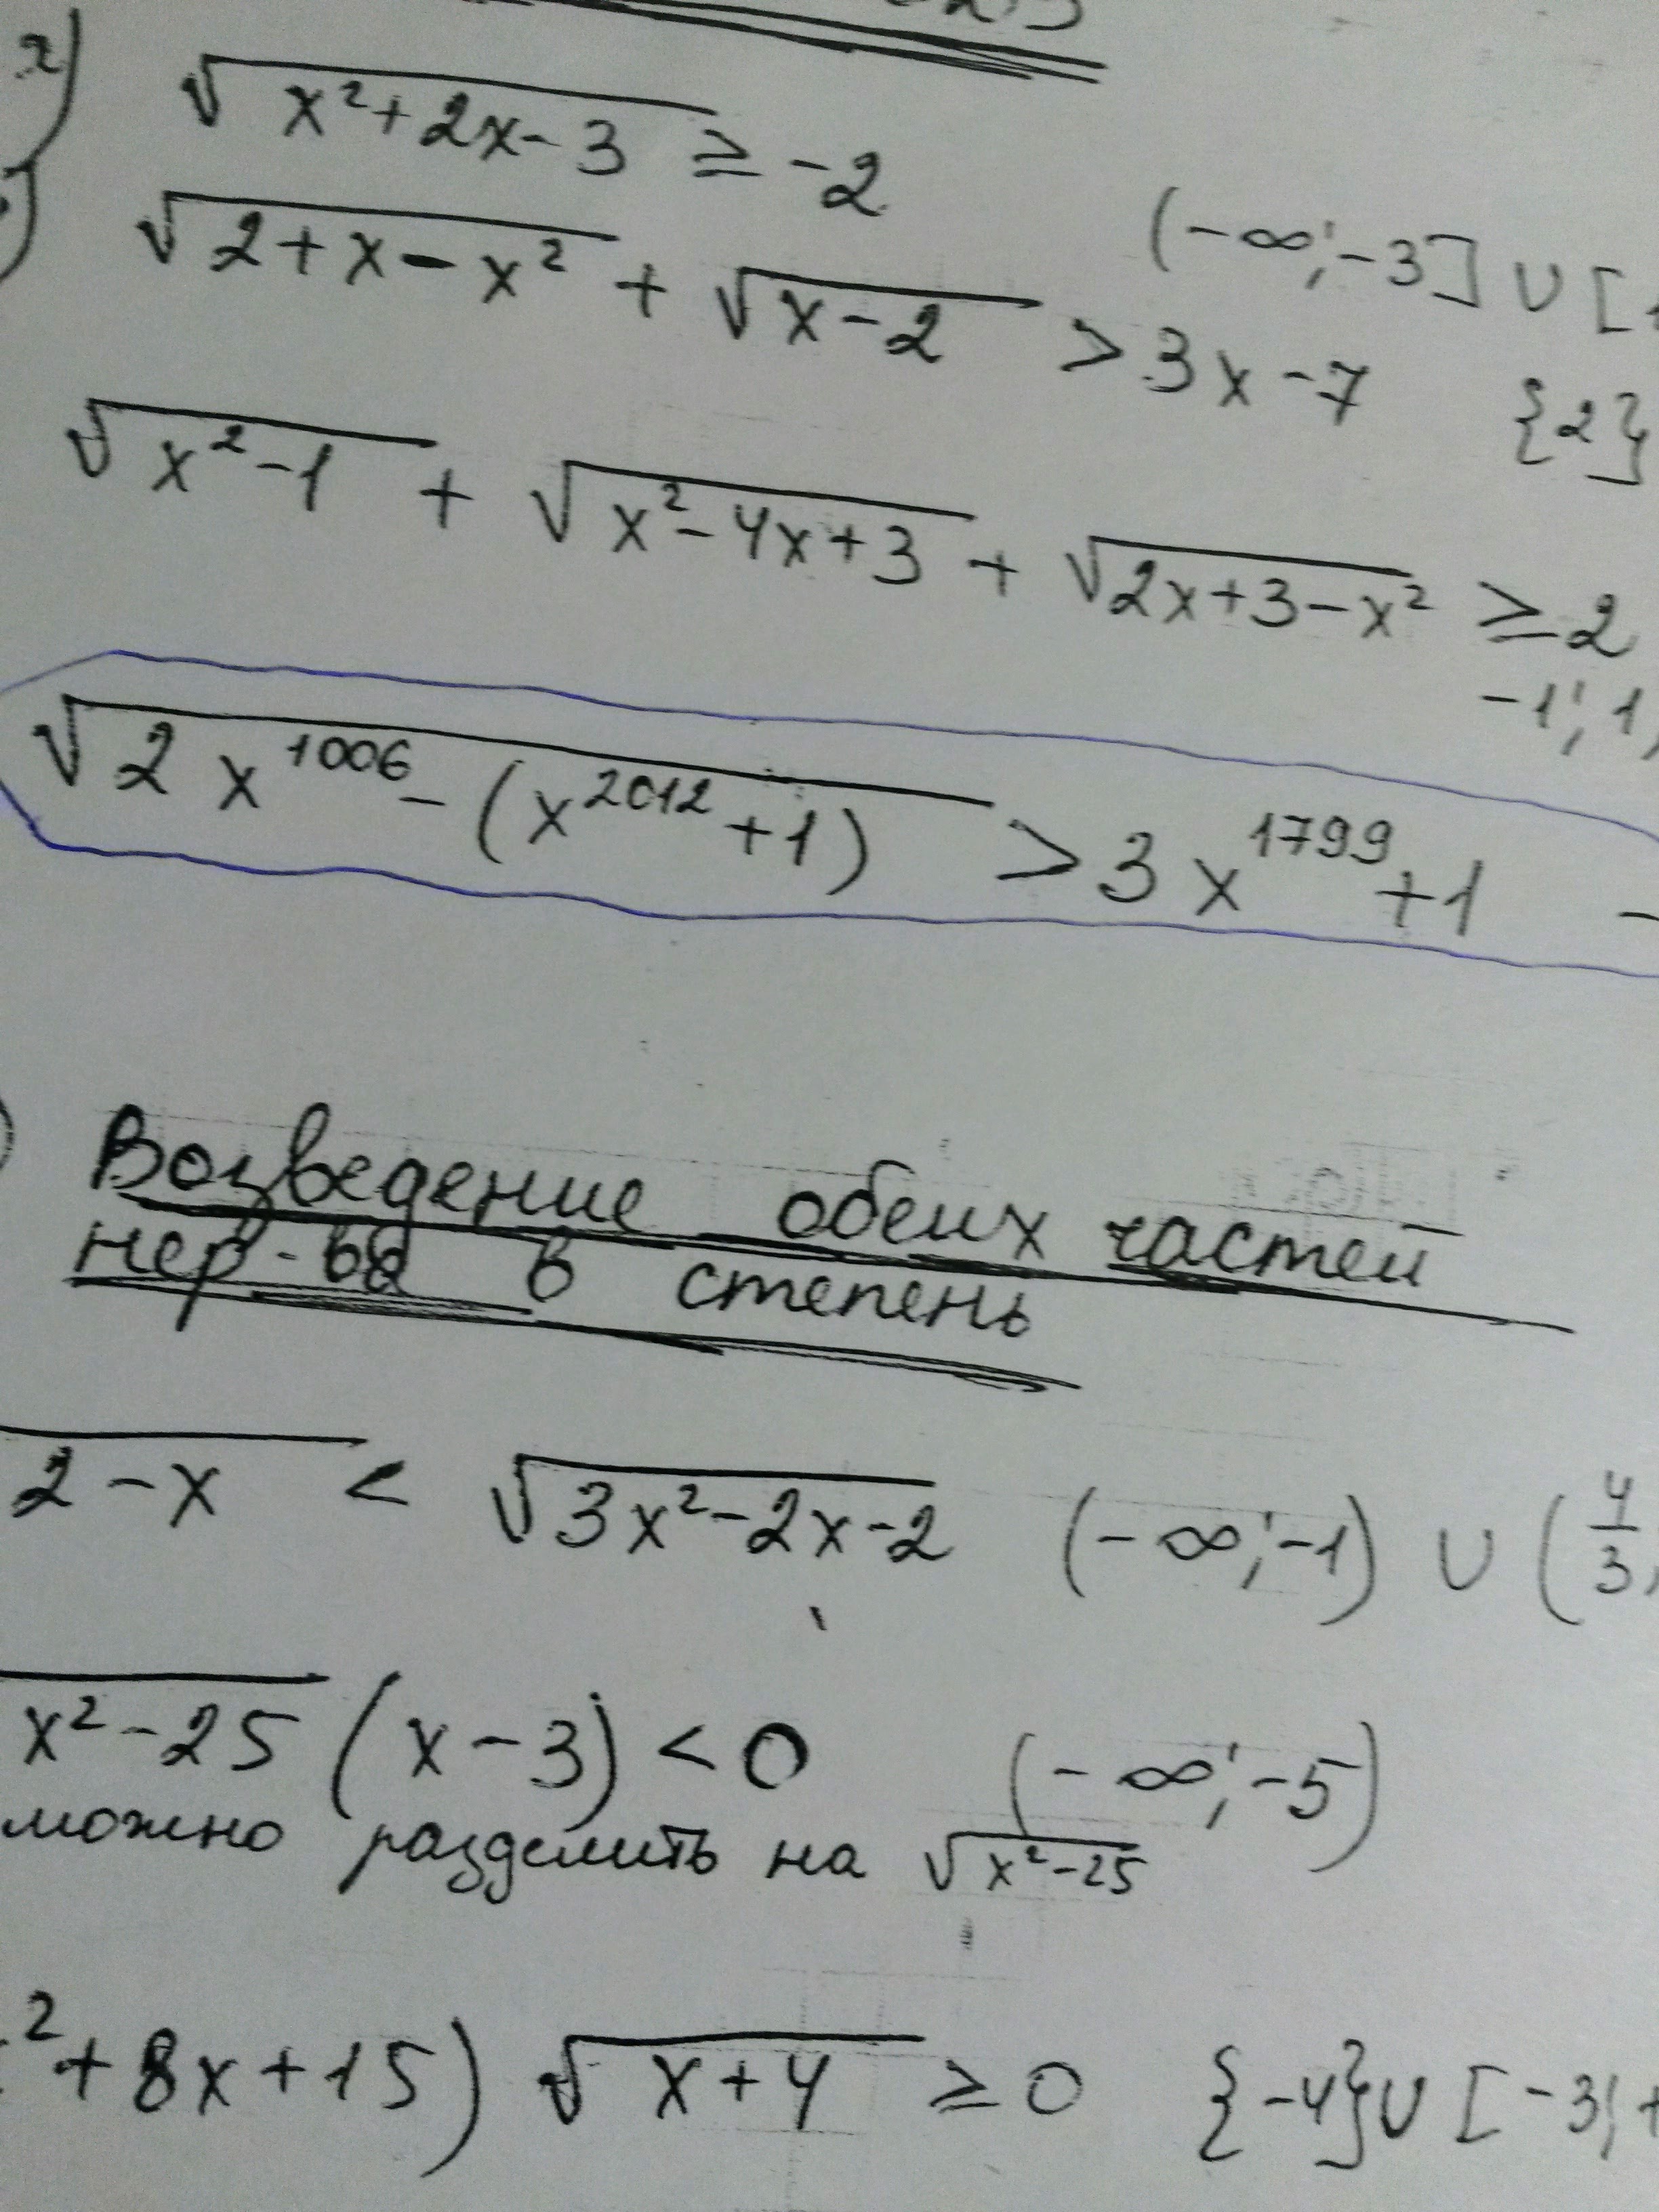 √x²+2x-3 ≥ -2
(-∞;-3] ∪ [
√2+x-x² + √x-2 > 3x-7 {2}
√x²-1 + √x²-4x+3 + √2x+3-x² ≥ 2
-1; 1
√2x¹⁰⁰⁶-(x²⁰¹²+1) > 3x¹⁷⁹⁹+1 -
Возведение обеих частей
нер-ва в степень
2-x < √3x²-2x-2 (-∞;-1) ∪ (4/3;
x²-25 (x-3) < 0 (-∞;-5)
можно разделить на √x²-25
²+8x+15) √x+4 ≥ 0 {-4}∪[-3; +